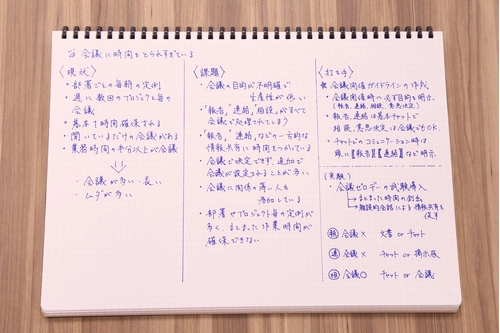 会議に時間をとられすぎている
〈現状〉
・部署ごとの毎朝の定例
・週に数回のプロジェクト毎の
会議
・基本1時間確保される
・聞いているだけの会議がある
・業務時間の半分以上が会議
・会議が多い、長い
・ムダが多い
〈課題〉
・会議の目的が不明確で
生産性が低い
・「報告」「連絡」「相談」がすべて
会議で処理されてしまう
・「報告」「連絡」などの一方的な
情報共有に時間をつかしている
・会議で決定できず、追加で
会議が設定されることが多い
・会議に関係の薄い人も
参加している
・部署やプロジェクト毎の定例が
多く、まとまった作業時間が
確保できない
〈打ち手〉
☆会議開催ガイドラインの作成
・会議開催時に必ず目的を明示
(報告、連絡、相談、意思決定)
・報告、連絡は基本チャットで
相談、意思決定は会議でもOK
・チャットでのコミュニケーション時は
頭に【報告】【連絡】など明示
〈実験〉
・会議ゼロデーの試験導入
→まとまった時間の創出
→雑談的会話による情報共有を
促す
報 会議× 文書 or チャット
連 会議× チャット or 掲示板
相 会議○ チャット or 会議